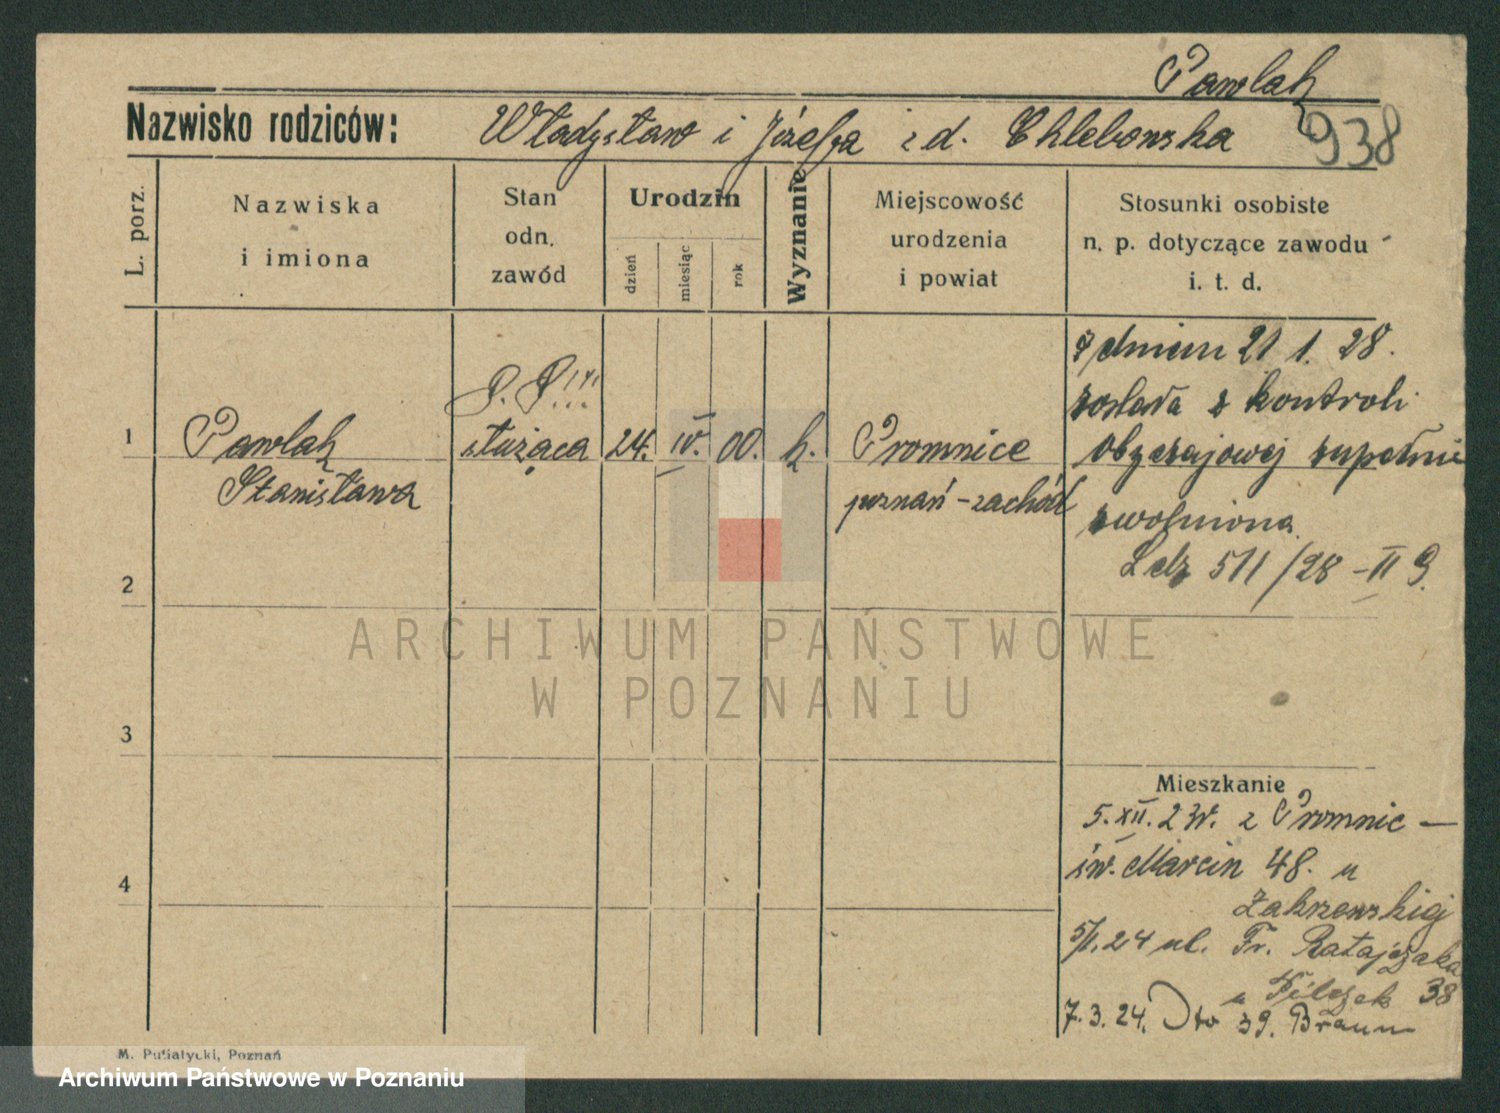 Pawlak
Nazwisko rodziców: Władysław i Józefa z d. Chlebowska
938
L. porz.
Nazwiska
i imiona
Stan
odn.
zawód
Urodzin
dzień
miesiąc
rok
Wyznanie
Miejscowość
urodzenia
i powiat
Stosunki osobiste
n. p. dotyczące zawodu
i. t. d.
1
Pawlak
Stanisława
P. P!!!
służąca
24.
IV.
00.
k.
Promnice
poznań-zachód
z dniem 21 1. 28.
została z kontroli
obyczajowej zupełnie
zwolniona
Ldz 511/28 - II
2
3
4
Mieszkanie
5.XII.23r. z Promnic —
św. Marcin 48. u
Zakrzewskiej
5/1.24 ul. Fr. Ratajczaka
38
7.3.24. Dto 39. Braun
M. Putiatycki, Poznań
ARCHIWUM PAŃSTWOWE
W POZNANIU
Archiwum Państwowe w Poznaniu